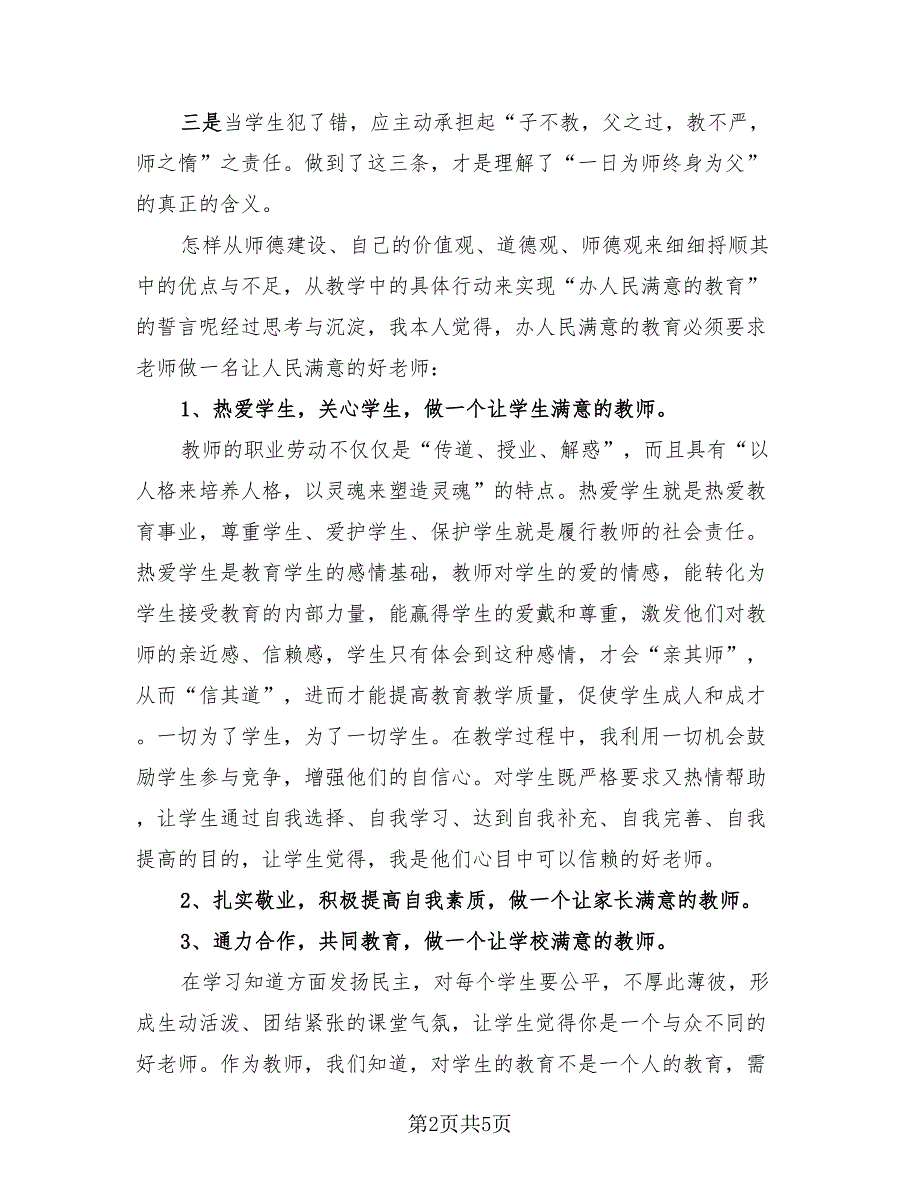 三是当学生犯了错，应主动承担起“子不教，父之过，教不严，
师之惰”之责任。做到了这三条，才是理解了“一日为师终身为父”
的真正的含义。
怎样从师德建设、自己的价值观、道德观、师德观来细细捋顺其
中的优点与不足，从教学中的具体行动来实现“办人民满意的教育”
的誓言呢经过思考与沉淀，我本人觉得，办人民满意的教育必须要求
老师做一名让人民满意的好老师：
1、热爱学生，关心学生，做一个让学生满意的教师。
教师的职业劳动不仅仅是“传道、授业、解惑”，而且具有“以
人格来培养人格，以灵魂来塑造灵魂”的特点。热爱学生就是热爱教
育事业，尊重学生、爱护学生、保护学生就是履行教师的社会责任。
热爱学生是教育学生的感情基础，教师对学生的爱的情感，能转化为
学生接受教育的内部力量，能赢得学生的爱戴和尊重，激发他们对教
师的亲近感、信赖感，学生只有体会到这种感情，才会“亲其师”，
从而“信其道”，进而才能提高教育教学质量，促使学生成人和成才
。一切为了学生，为了一切学生。在教学过程中，我利用一切机会鼓
励学生参与竞争，增强他们的自信心。对学生既严格要求又热情帮助
，让学生通过自我选择、自我学习、达到自我补充、自我完善、自我
提高的目的，让学生觉得，我是他们心目中可以信赖的好老师。
2、扎实敬业，积极提高自我素质，做一个让家长满意的教师。
3、通力合作，共同教育，做一个让学校满意的教师。
在学习知道方面发扬民主，对每个学生要公平，不厚此薄彼，形
成生动活泼、团结紧张的课堂气氛，让学生觉得你是一个与众不同的
好老师。作为教师，我们知道，对学生的教育不是一个人的教育，需
第2页共5页